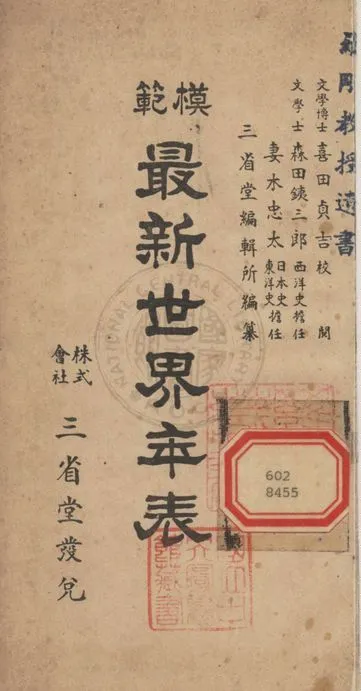 教授遺書
文學博士 喜田貞吉 校閲
文學士 森田銕三郎 西洋史擔任
妻木忠太 日本史 東洋史 擔任
三省堂編輯所編纂
模範
最新世界年表
株式會社 三省堂發兌
602
8455
NATIONAL CENTRAL LIBRARY